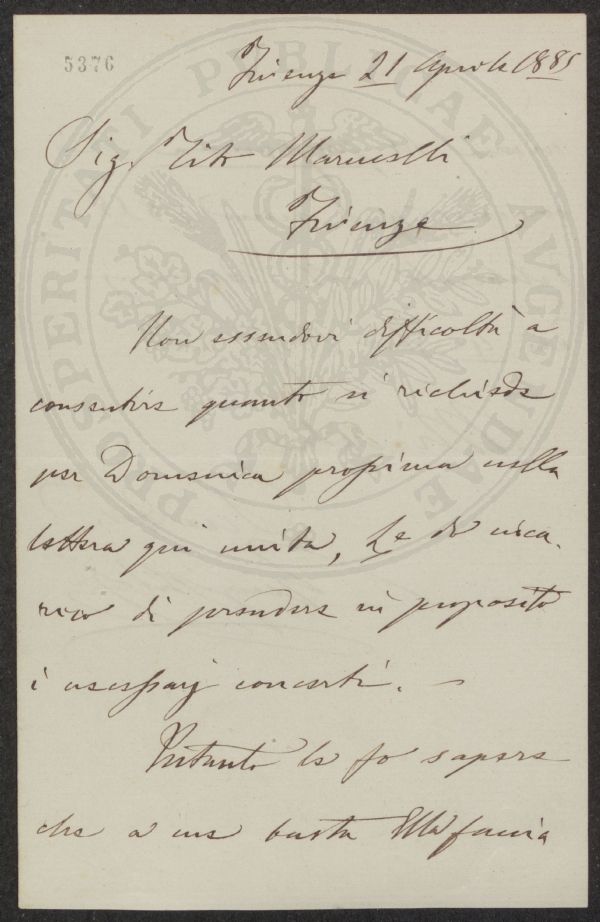 5376
Firenze 21 Aprile 1885
Sig. Tito Marucelli
Firenze
Non essendovi difficoltà a
consentire quanto si richiede
per Domenica prossima nella
lettera qui unita, Le do inca-
rico di prendere in proposito
i necessarj concerti. —
Intanto le fo sapere
che a me basta Ella faccia
PROSPERITATI PUBLICAE AUGENDAE